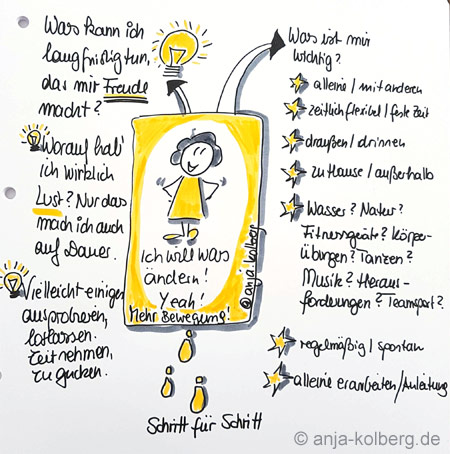 Was kann ich
langfristig tun,
das mir Freude
macht?
Worauf hab'
ich wirklich
Lust? Nur das
mach ich auch
auf Dauer.
Vielleicht einiges
ausprobieren,
loslassen.
Zeit nehmen,
zu gucken.
Ich will was
ändern!
Yeah!
Mehr Bewegung!
@anja.kolberg
Schritt für Schritt
Was ist mir
wichtig?
alleine / mit anderen
zeitlich flexibel / feste Zeit
draußen / drinnen
zu Hause / außerhalb
Wasser? Natur?
Fitnessgeräte? Körper-
übungen? Tanzen?
Musik? Heraus-
forderungen? Teamsport?
regelmäßig / spontan
alleine erarbeiten / Anleitung
© anja-kolberg.de